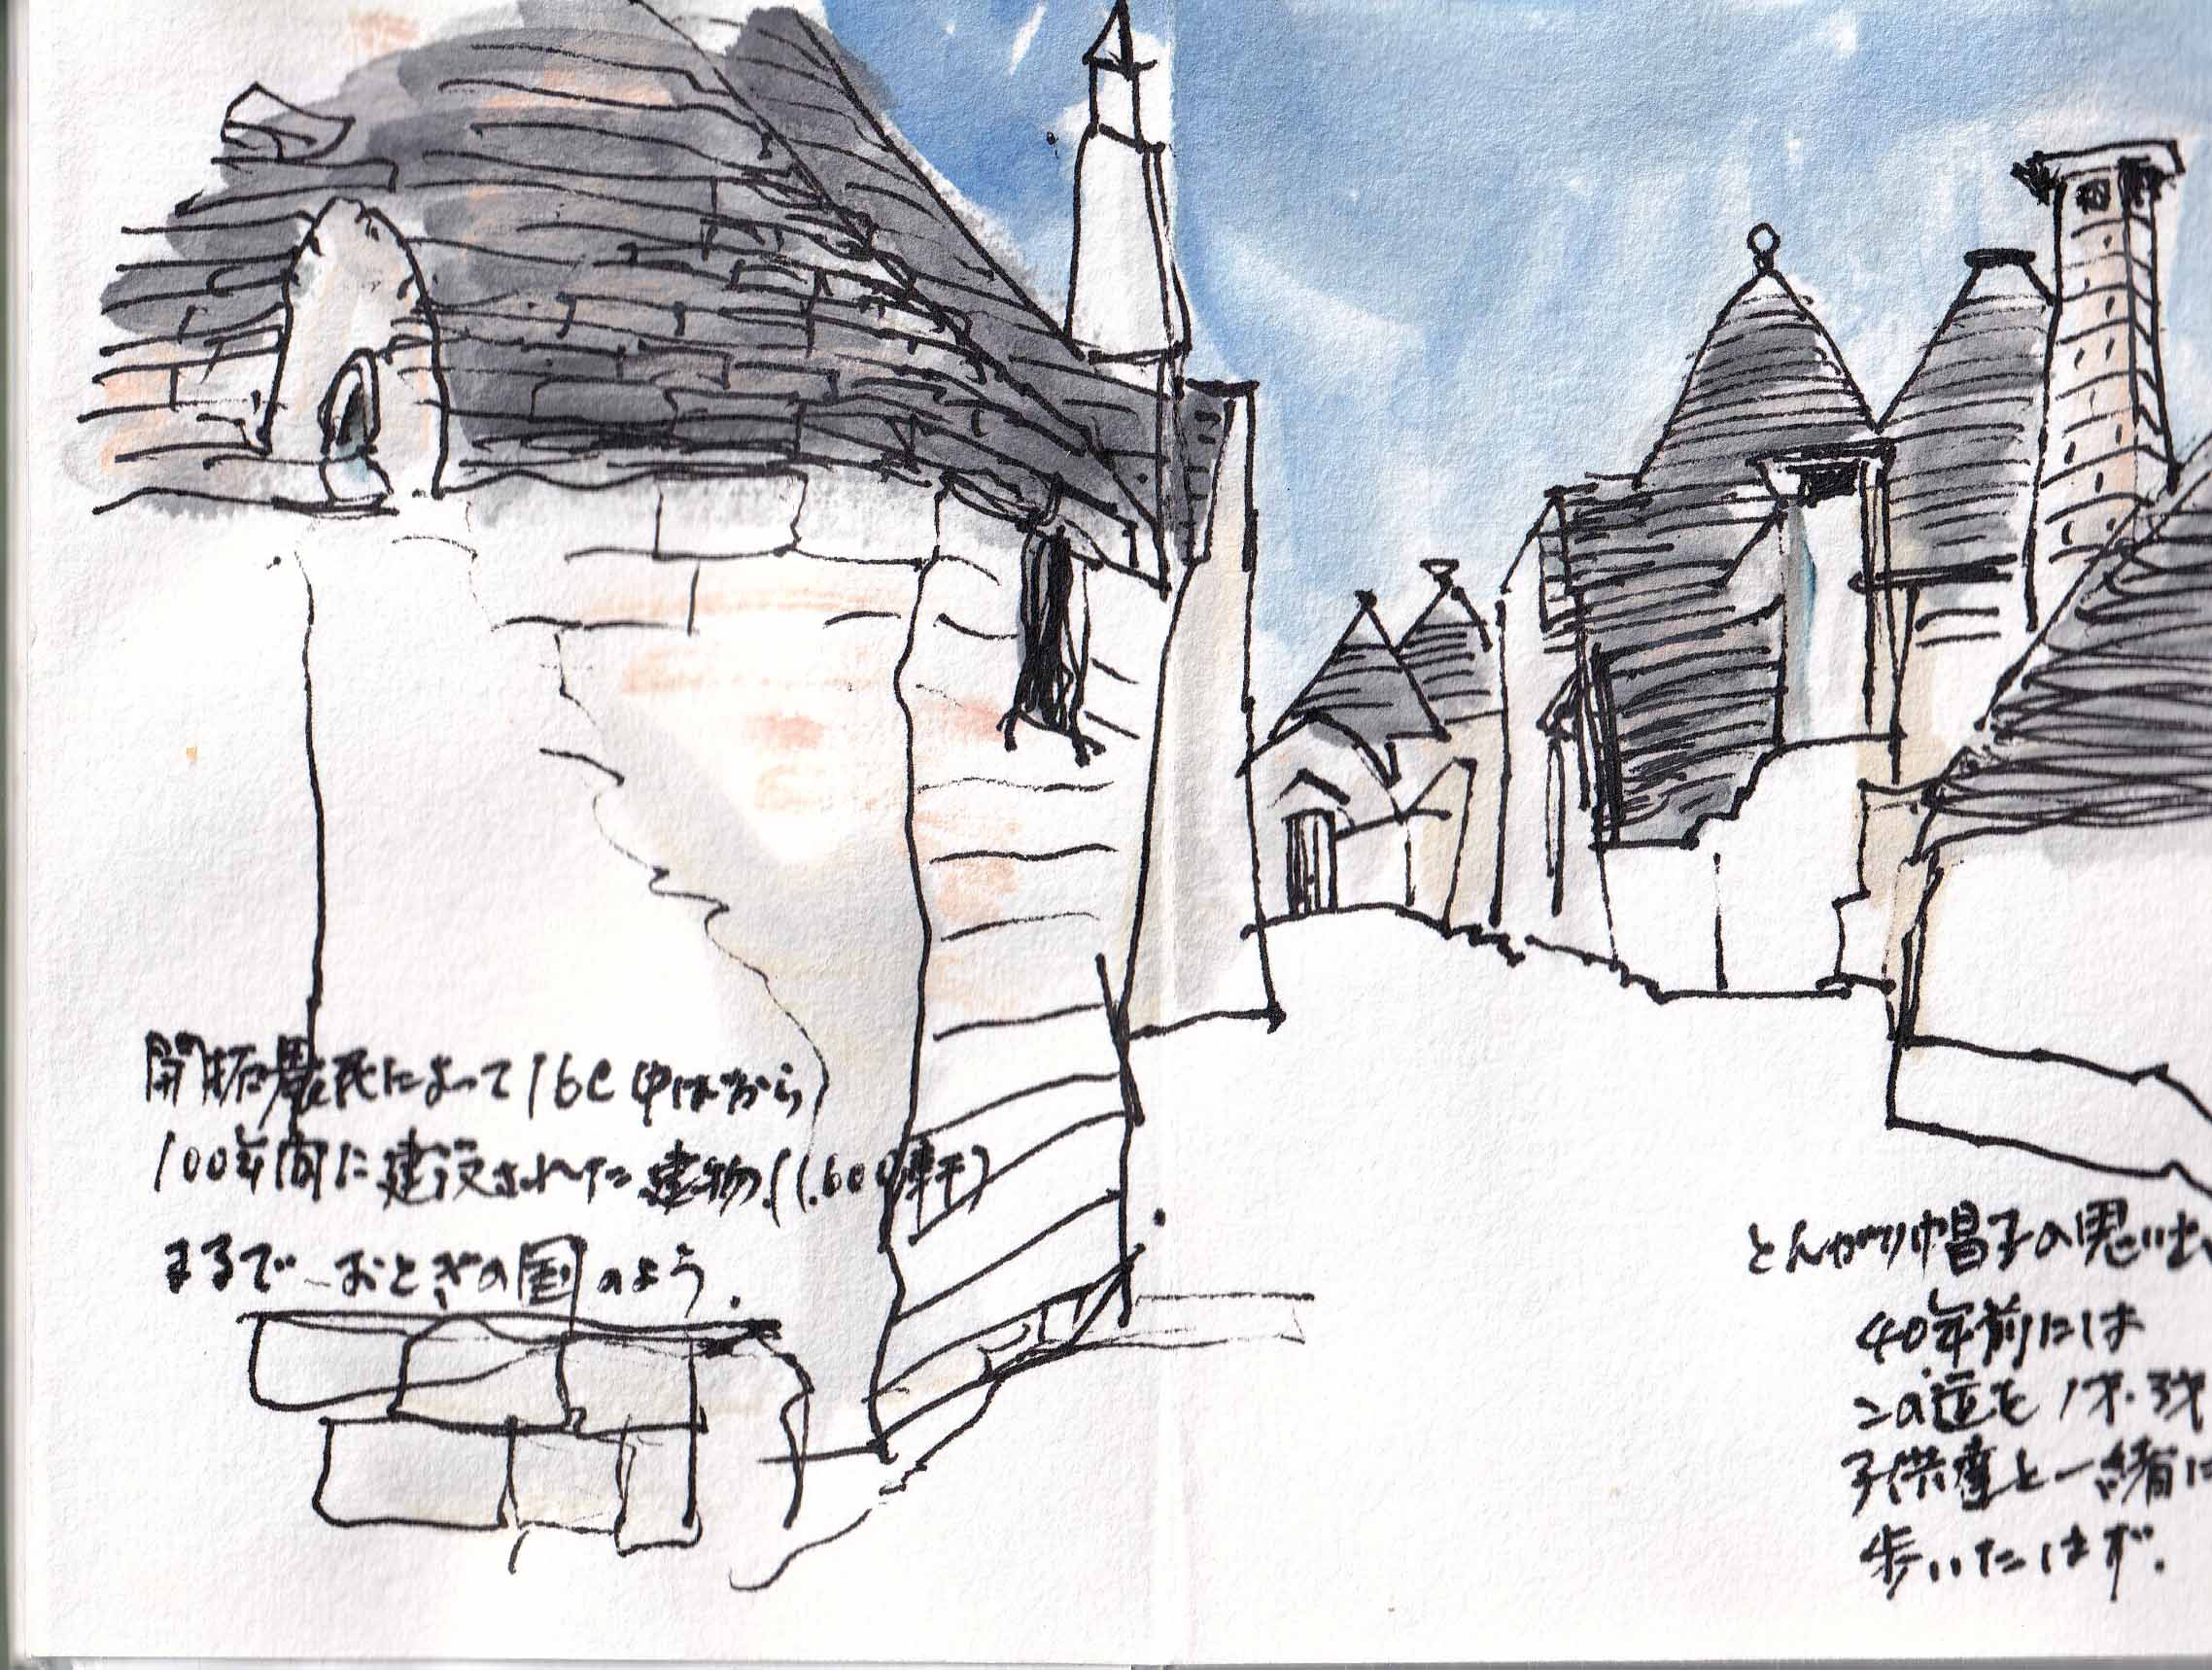 開拓農民によって16C中ばから
100年間に建設された建物.(1.600軒)
まるで おとぎの国のよう.
とんがり帽子の思い出
40年前には
この道を1才.3才
子供達と一緒に
歩いたはず.